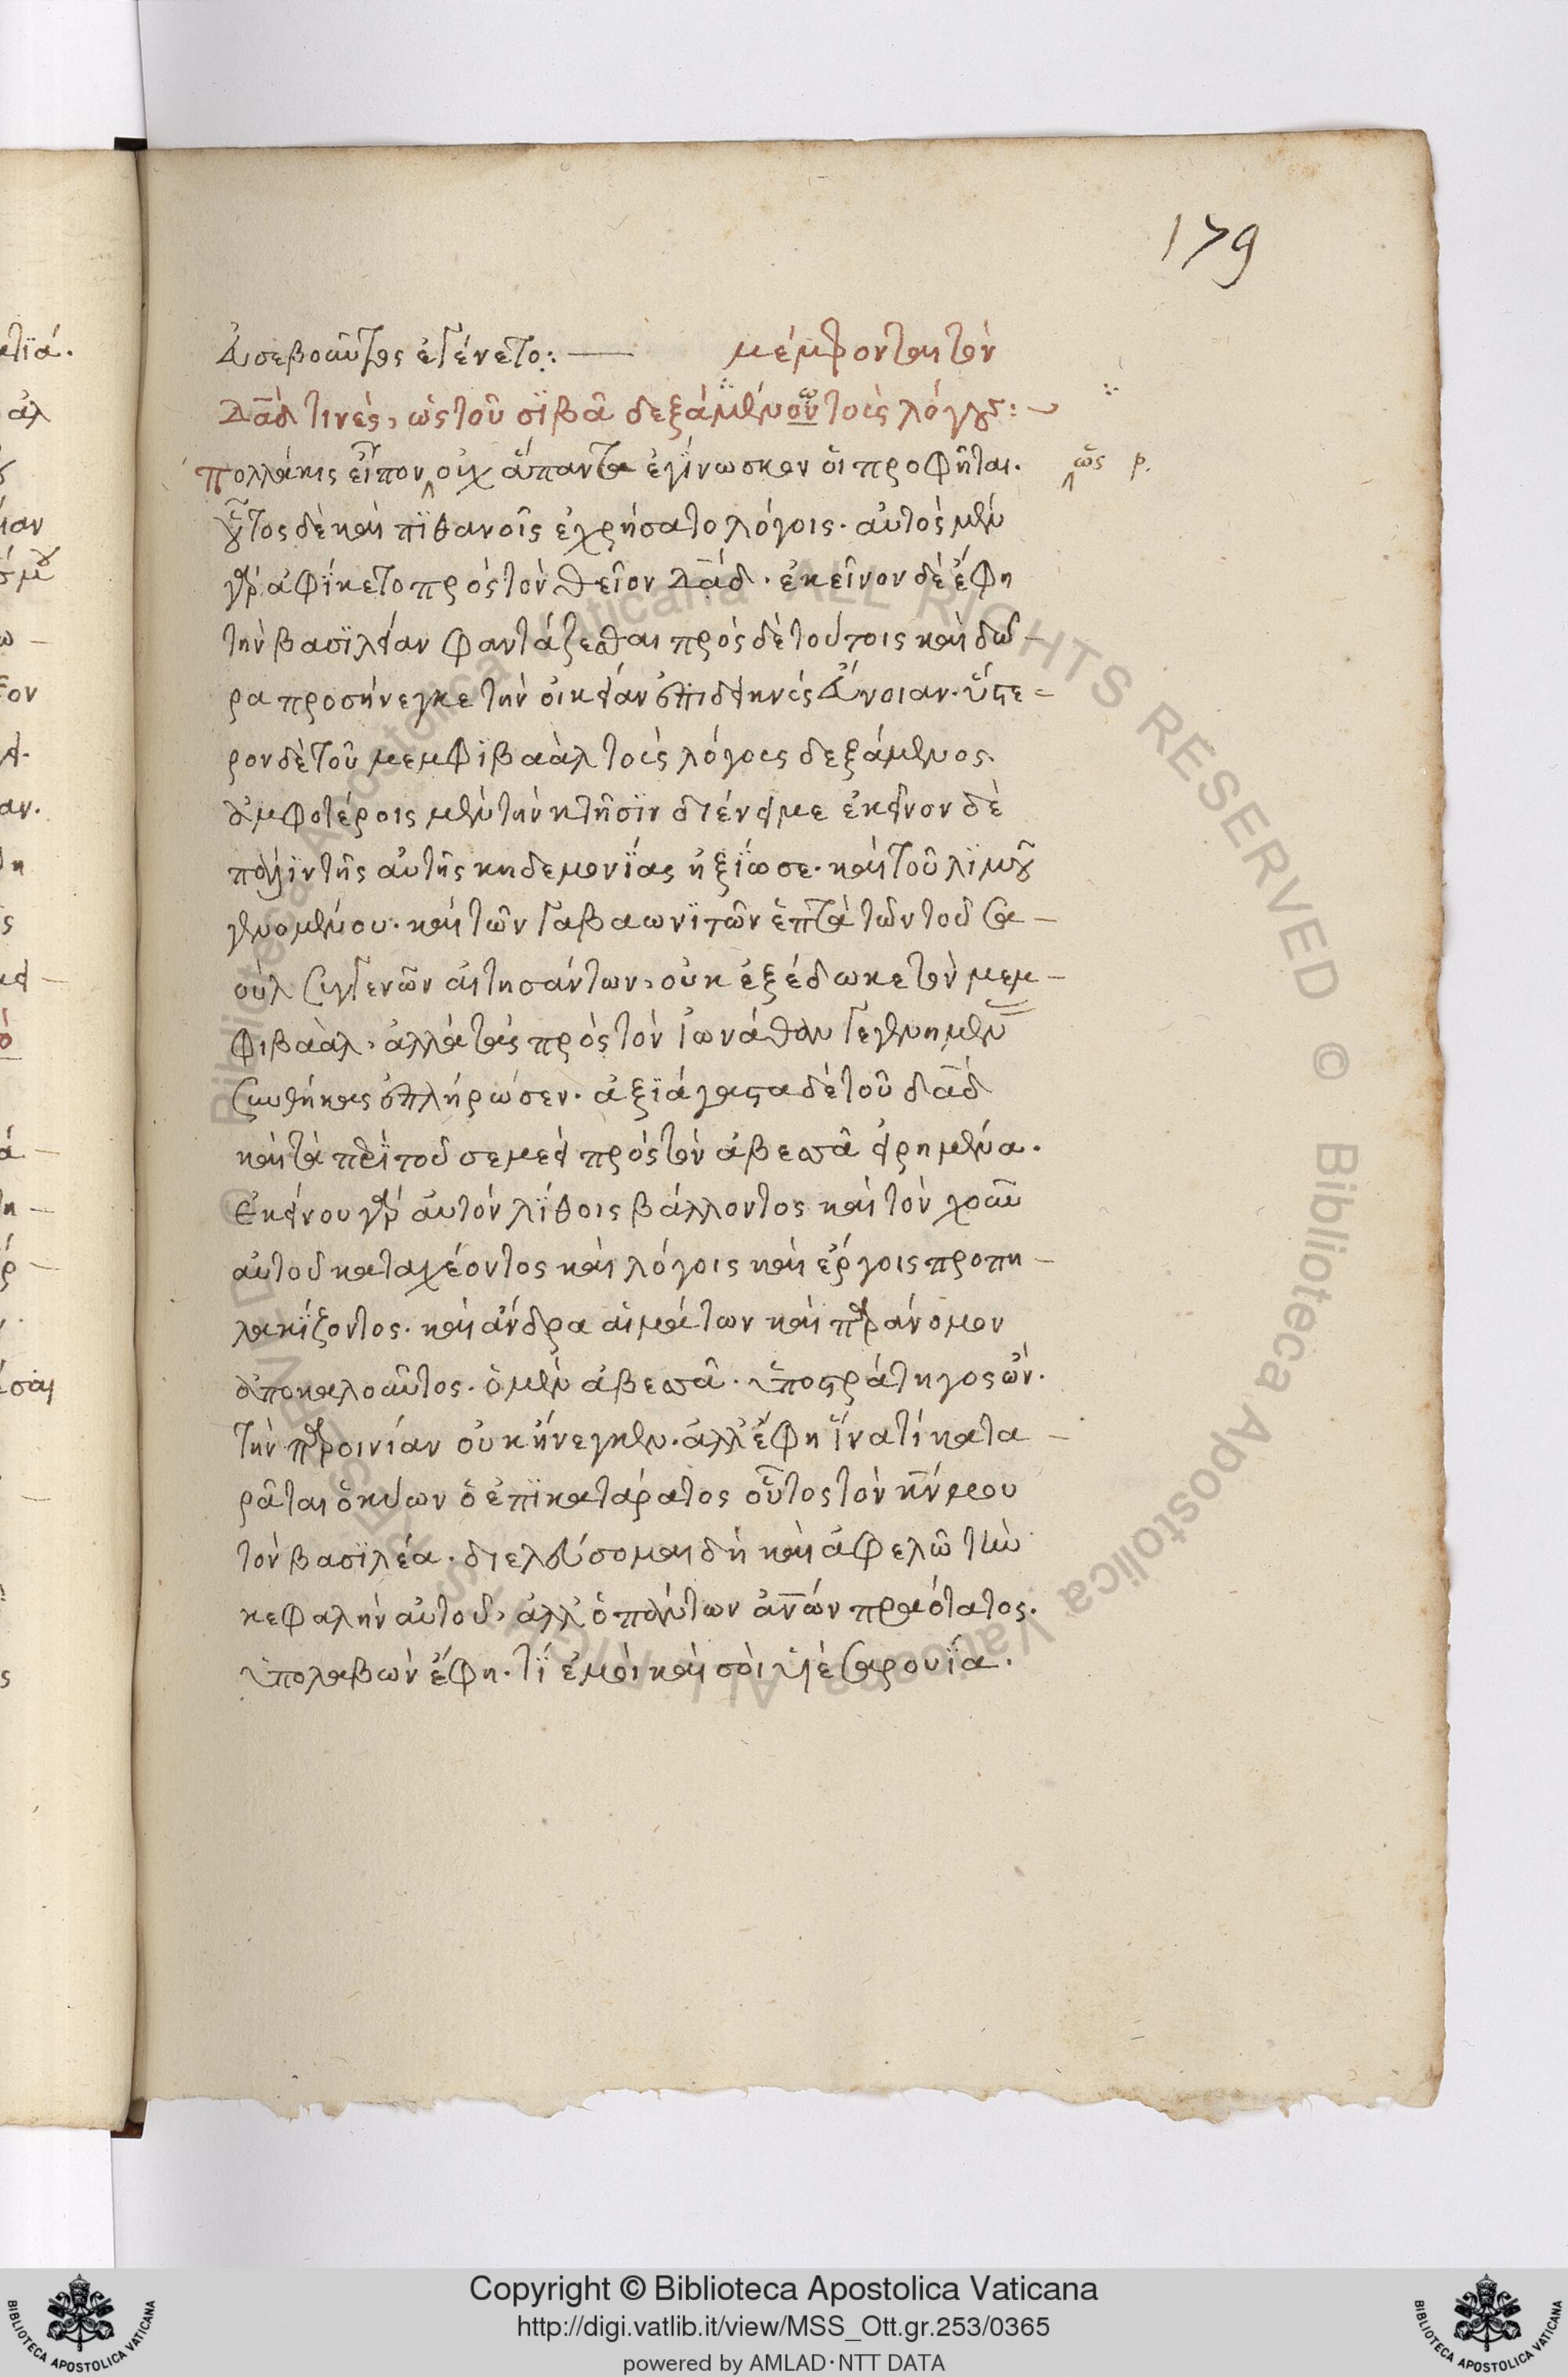 179
ἀσεβοῦντας ἐγένετο:— μέμφονται τὸν
Δα̅δ τινὲς, ὡς τοῦ σϊβᾶ δεξάμενον τοὺς λόγους:
πολλάκις εἶπον οὐχ ἅπαντα ἐγίνωσκον ὁι προφῆται. ὡς ρ.
οὗτος δὲ καὶ πϊθανοῖς ἐχρήσατο λόγοις. αὐτὸς μὲν
γὰρ ἀφίκετο πρὸς τὸν θεῖον Δα̅δ. ἐκεῖνον δὲ ἔφη
τὴν βασϊλείαν φαντάζεσθαι πρὸς δὲ τούτοις καὶ δῶ-
ρα προσήνεγκε τὴν οἰκείαν ἐπιδεικνὺς εὔνοιαν. ὕστε-
ρον δὲ τοῦ μεμφϊβαὰλ τοὺς λόγους δεξάμενος.
ἀμφοτέροις μὲν τὴν κτῆσϊν διένειμε ἐκεῖνον δὲ
πάλϊν τῆς αὐτῆς κηδεμονΐας ἠξΐωσε. καὶ τοῦ λϊμοῦ
γενομένου. καὶ τῶν Γαβαωνϊτῶν ἑπτὰ τῶν τοῦ σα-
οὺλ συγγενῶν αἰτησάντων, οὐκ ἐξέδωκε τὸν μεμ-
φιβαὰλ, ἀλλὰ τὰς πρὸς τὸν ἰωνάθαν γεγενημένας
συνθήκας ἐπλήρωσεν. ἀξϊάγαστα δὲ τοῦ δα̅δ
καὶ τὰ περὶ τοῦ σεμεεὶ πρὸς τὸν ἀβεσσᾶ εἰρημένα.
ἐκείνου γὰρ αὐτὸν λίθοις βάλλοντος καὶ τὸν χοῦν
αὐτοῦ καταχέοντος καὶ λόγοις καὶ ἔργοις προπη-
λακϊζοντος. καὶ ἄνδρα αἱμάτων καὶ παράνομον
ἀποκαλοῦντος. ὁ μὲν ἀβεσσᾶ. ὑποστράτηγος ὢν.
τὴν παροινίαν οὐκ ἤνεγκεν. ἀλλ' ἔφη ἵνα τί κατα-
ρᾶται ὁ κύων ὁ ἐπϊκατάρατος οὗτος τὸν κν̅ μου
τὸν βασϊλέα. διελεύσομαι δὴ καὶ ἀφελῶ τὴν
κεφαλὴν αὐτοῦ, ἀλλ' ὁ πάντων ἀν̅ων πραότατος.
ὑπολαβὼν ἔφη. τΐ ἐμοὶ καὶ σοὶ υἱὲ σαρουΐα.
Copyright © Biblioteca Apostolica Vaticana
http://digi.vatlib.it/view/MSS_Ott.gr.253/0365
powered by AMLAD·NTT DATA